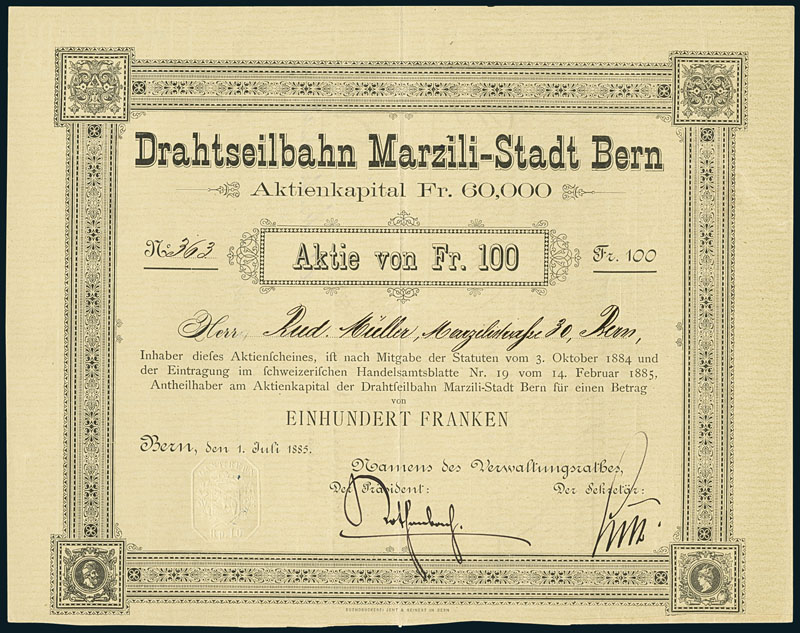 Drahtseilbahn Marzili-Stadt Bern
Aktienkapital Fr. 60,000
No 363
Aktie von Fr. 100
Fr. 100
Herr, Rud. Müller, 30, Bern,
Inhaber dieſes Aktienſcheines, iſt nach Mitgabe der Statuten vom 3. Oktober 1884 und
der Eintragung im ſchweizeriſchen Handelsamtsblatte Nr. 19 vom 14. Februar 1885,
Antheilhaber am Aktienkapital der Drahtſeilbahn Marzili-Stadt Bern für einen Betrag
von
EINHUNDERT FRANKEN
Bern, den 1. Juli 1885.
Namens des Verwaltungsrathes,
Der Präsident:
Der Sekretär:
Rothenbach.
BUCHDRUCKEREI JENT & REINERT IN BERN